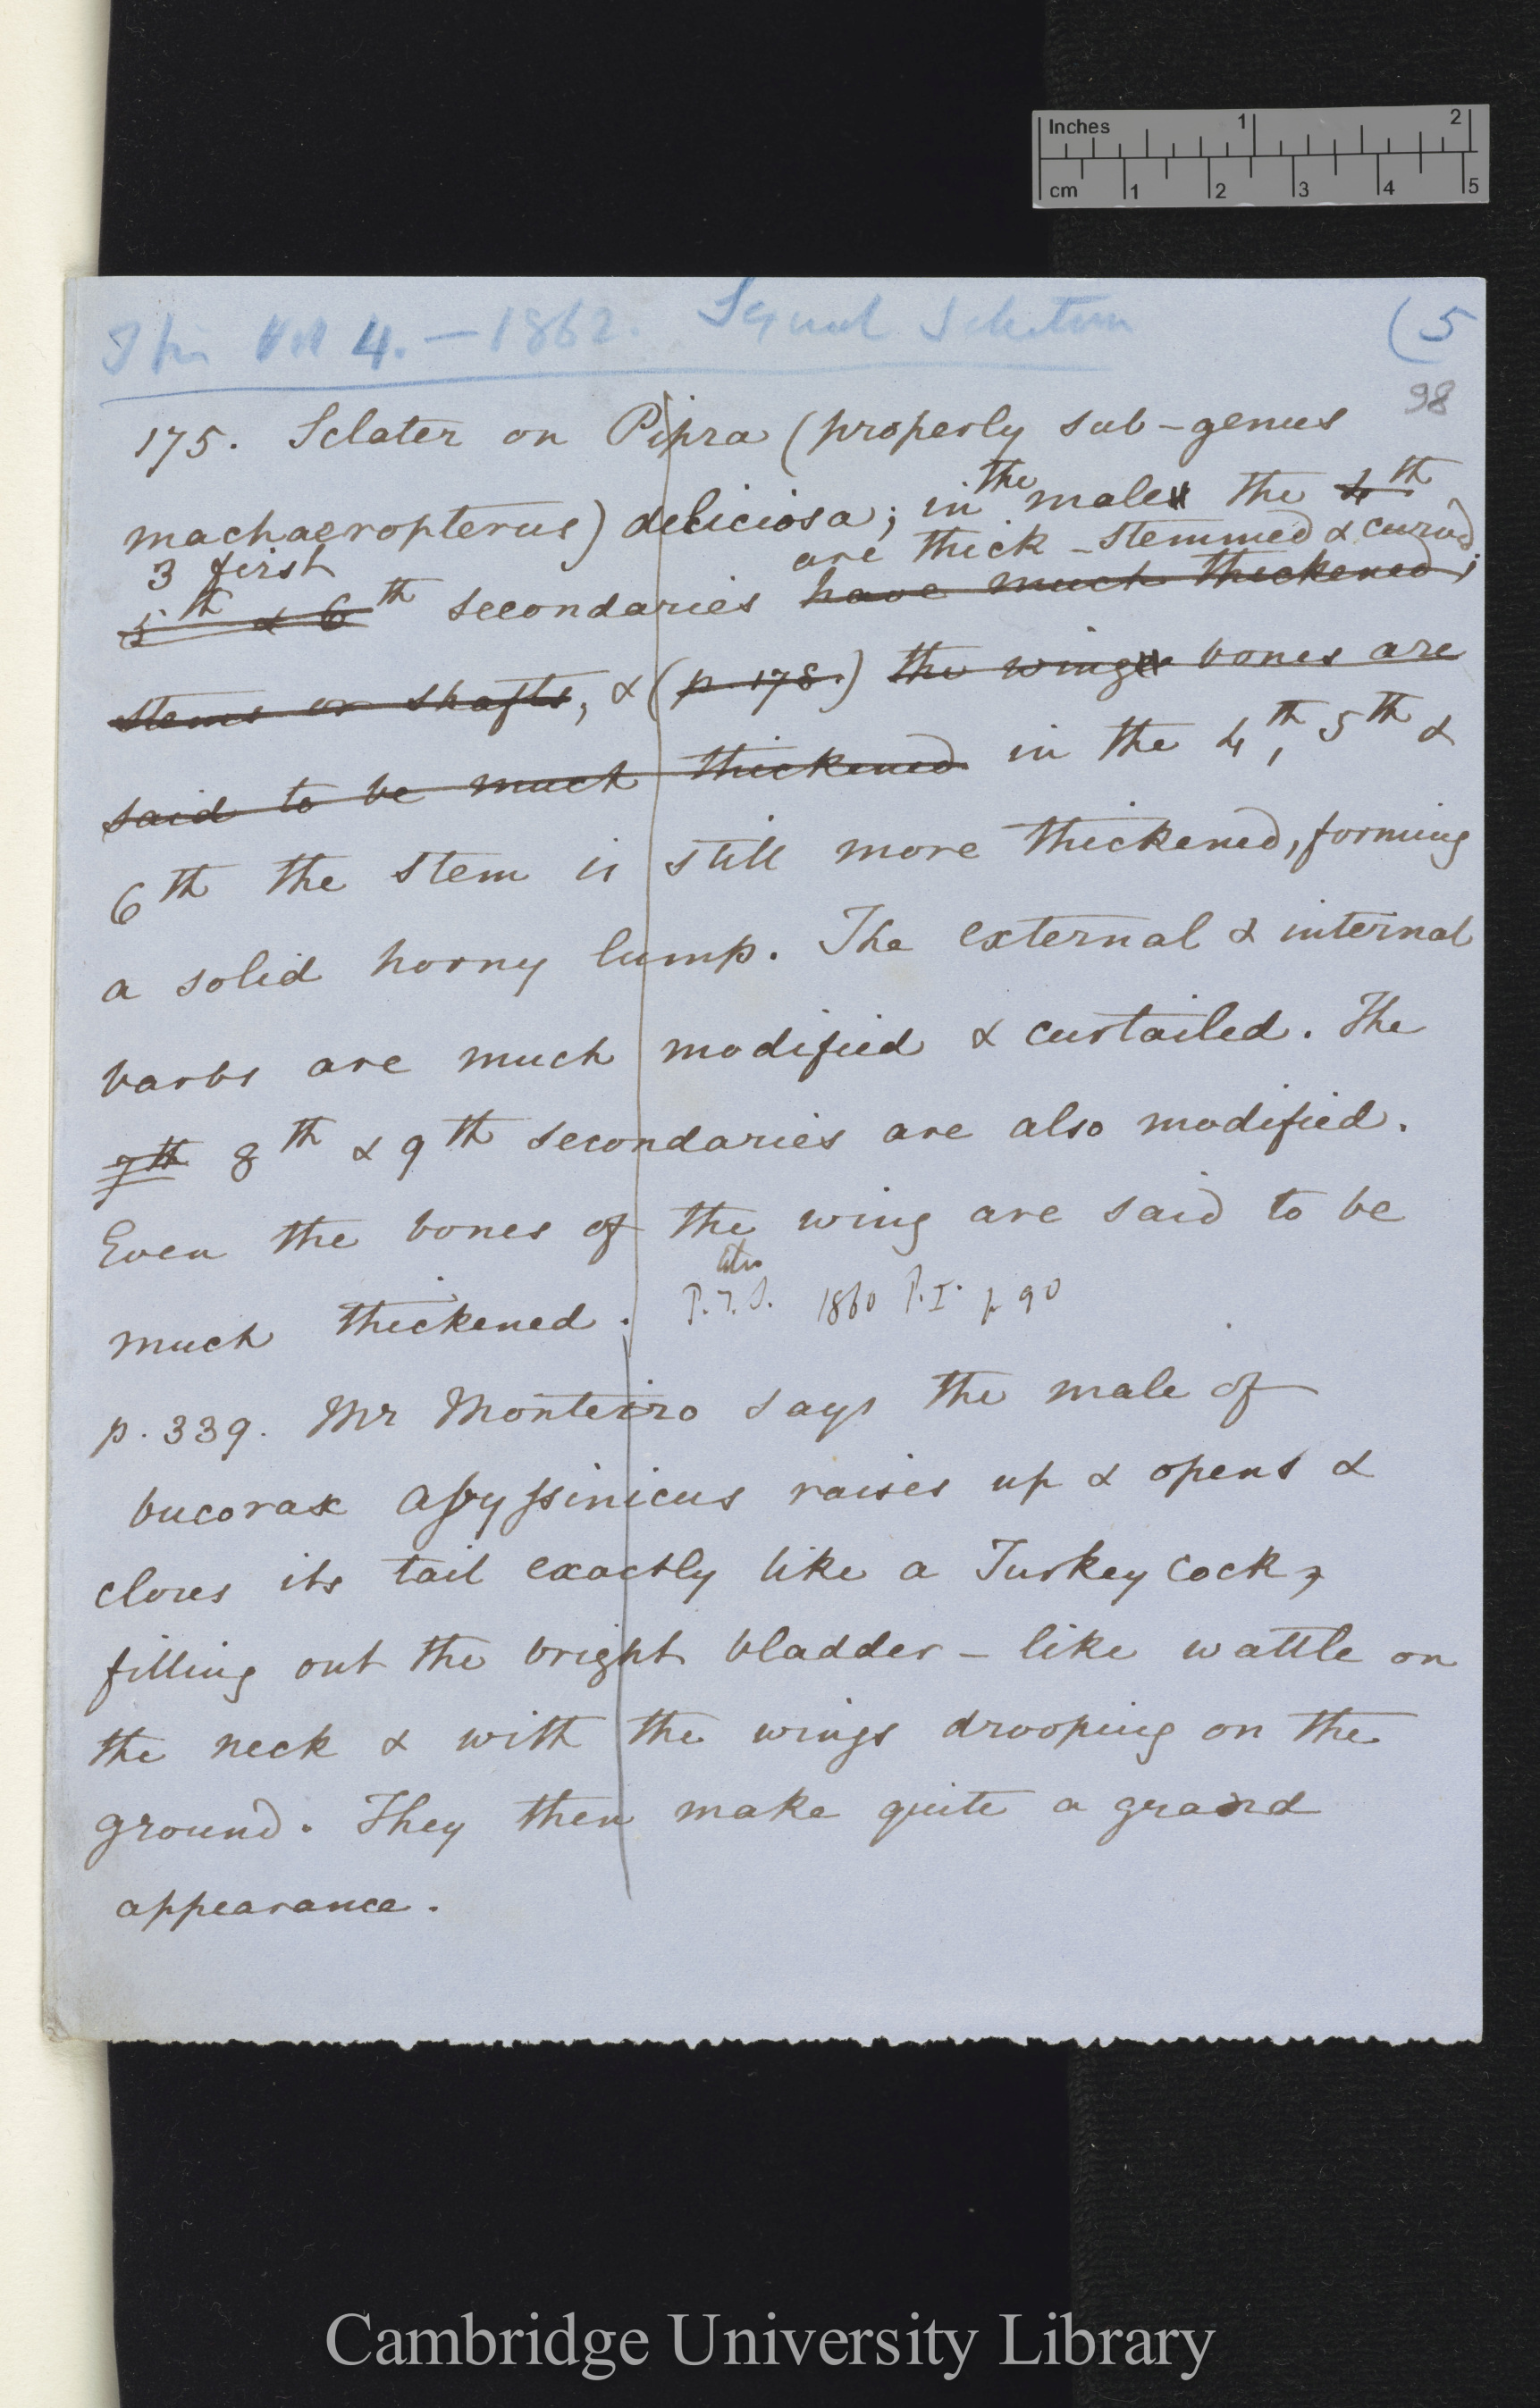 Inches 1 2
cm 1 2 3 4 5
Ibis Vol 4. – 1862. Sexual Selection (5
98
175. Sclater on Pipra (properly sub-genus
machaeropterus) deliciosa; in the male the 4th
3 first are thick-stemmed & curved;
5th & 6th secondaries have much thickened
stems or shafts, & (p. 178.) the wing bones are
said to be much thickened in the 4th, 5th &
6th the stem is still more thickened, forming
a solid horny lump. The external & internal
barbs are much modified & curtailed. The
7th 8th & 9th secondaries are also modified.
Even the bones of the wing are said to be
much thickened. 1860 P.I. p 90
p. 339. Mr Monteiro says the male of
bucorax Abyssinicus raises up & opens &
closes its tail exactly like a Turkey cock,
filling out the bright bladder-like wattle on
the neck & with the wings drooping on the
ground. They then make quite a grand
appearance.
Cambridge University Library